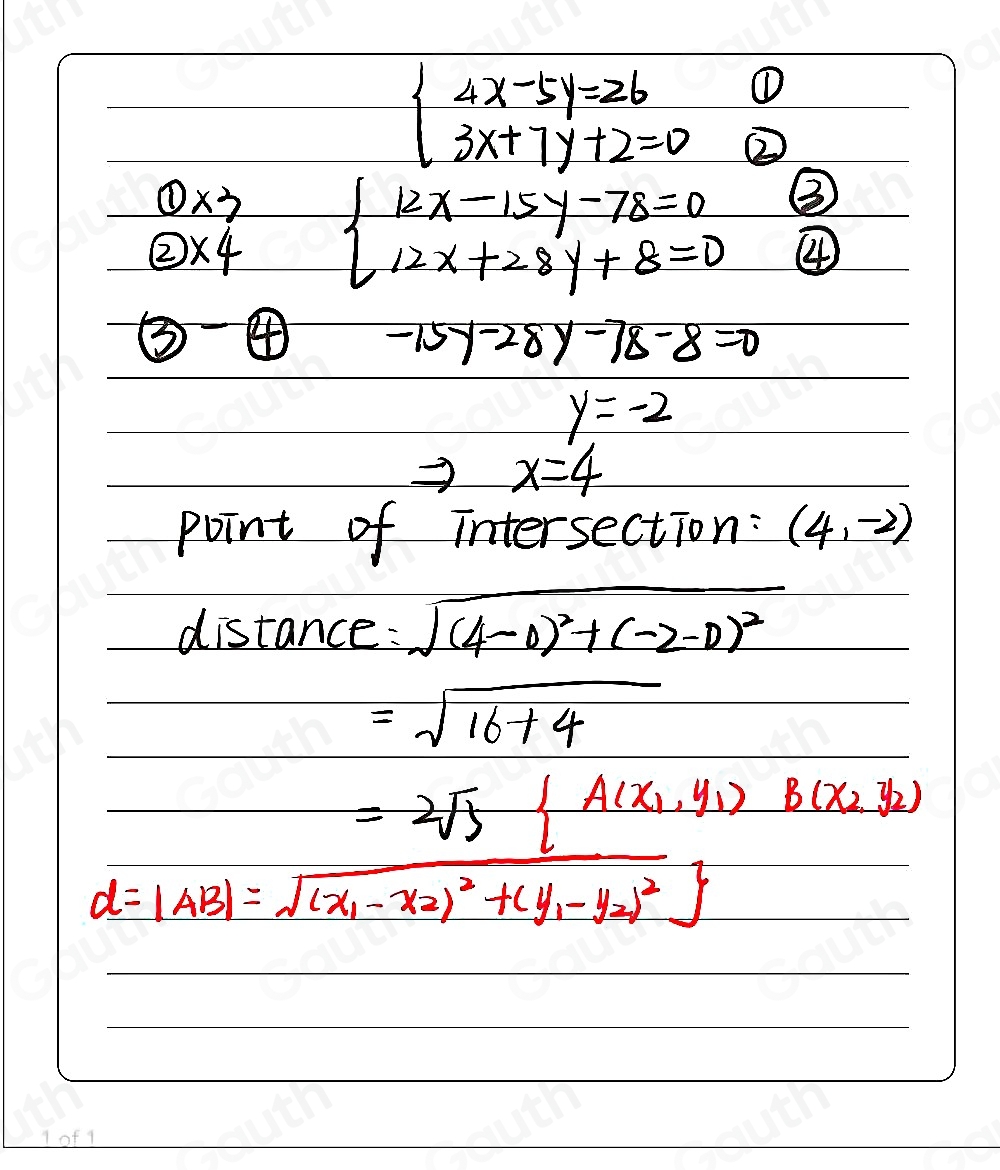 { 4x-5y=26 ①
3x+7y+2=0 ②
①×3 { 12x-15y-78=0 ③
②×4 12x+28y+8=0 ④
③-④ -15y-28y-78-8=0
y=-2
⇒ x=4
point of intersection: (4,-2)
distance: √(4-0)²+(-2-0)²
= √16+4
= 2√5 { A(x₁,y₁) B(x₂,y₂)
d=|AB|=√(x₁-x₂)²+(y₁-y₂)² }
1 of 1
Gauth